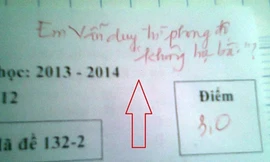 Em vẫn duy trì phong độ
không hạ bài"?
học: 2013 - 2014
12
Điểm
3,0
ã đề 132-2